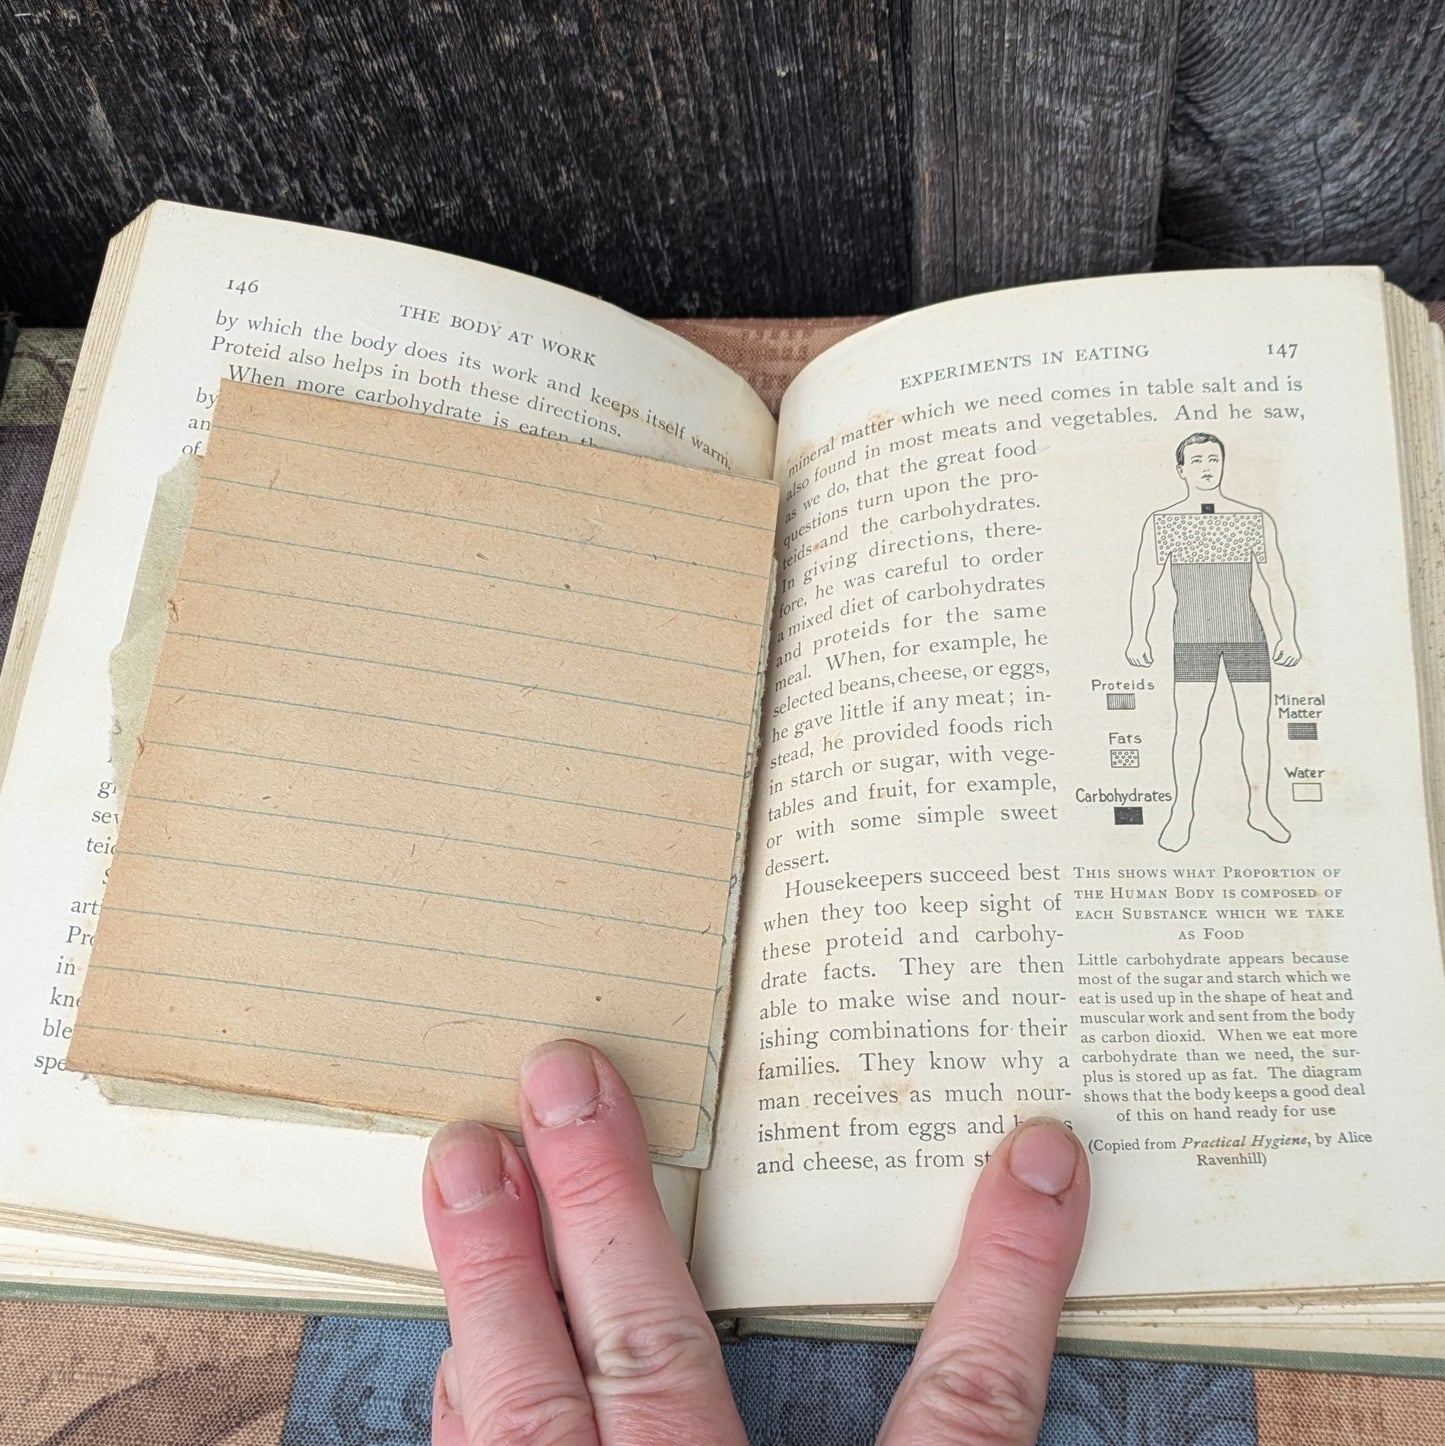 146
THE BODY AT WORK
by which the body does its work and keeps itself warm.
Proteid also helps in both these directions.
When more carbohydrate is eaten
by
an
of
g
sev
teid
S
arti
Pro
in
kno
ble
spe
EXPERIMENTS IN EATING 147
mineral matter which we need comes in table salt and is
also found in most meats and vegetables. And he saw,
as we do, that the great food
questions turn upon the pro-
teids and the carbohydrates.
In giving directions, there-
fore, he was careful to order
a mixed diet of carbohydrates
and proteids for the same
meal. When, for example, he
selected beans, cheese, or eggs,
he gave little if any meat; in-
stead, he provided foods rich
in starch or sugar, with vege-
tables and fruit, for example,
or with some simple sweet
dessert.
Housekeepers succeed best
when they too keep sight of
these proteid and carbohy-
drate facts. They are then
able to make wise and nour-
ishing combinations for their
families. They know why a
man receives as much nour-
ishment from eggs and
and cheese, as from st
Proteids
Fats
Carbohydrates
Mineral
Matter
Water
THIS SHOWS WHAT PROPORTION OF
THE HUMAN BODY IS COMPOSED OF
EACH SUBSTANCE WHICH WE TAKE
AS FOOD
Little carbohydrate appears because
most of the sugar and starch which we
eat is used up in the shape of heat and
muscular work and sent from the body
as carbon dioxid. When we eat more
carbohydrate than we need, the sur-
plus is stored up as fat. The diagram
shows that the body keeps a good deal
of this on hand ready for use
(Copied from Practical Hygiene, by Alice
Ravenhill)